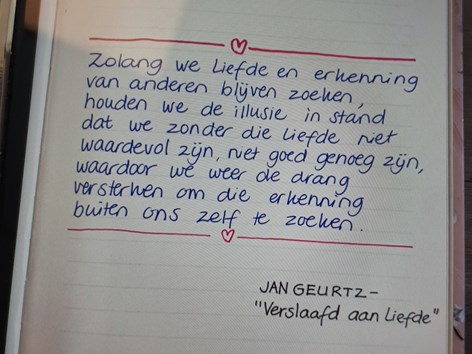 Zolang we Liefde en erkenning
van anderen blijven zoeken,
houden we de illusie in stand
dat we zonder die Liefde niet
waardevol zijn, niet goed genoeg zijn,
waardoor we weer de drang
versterken om die erkenning
buiten ons zelf te zoeken.
JAN GEURTZ-
"Verslaafd aan Liefde"